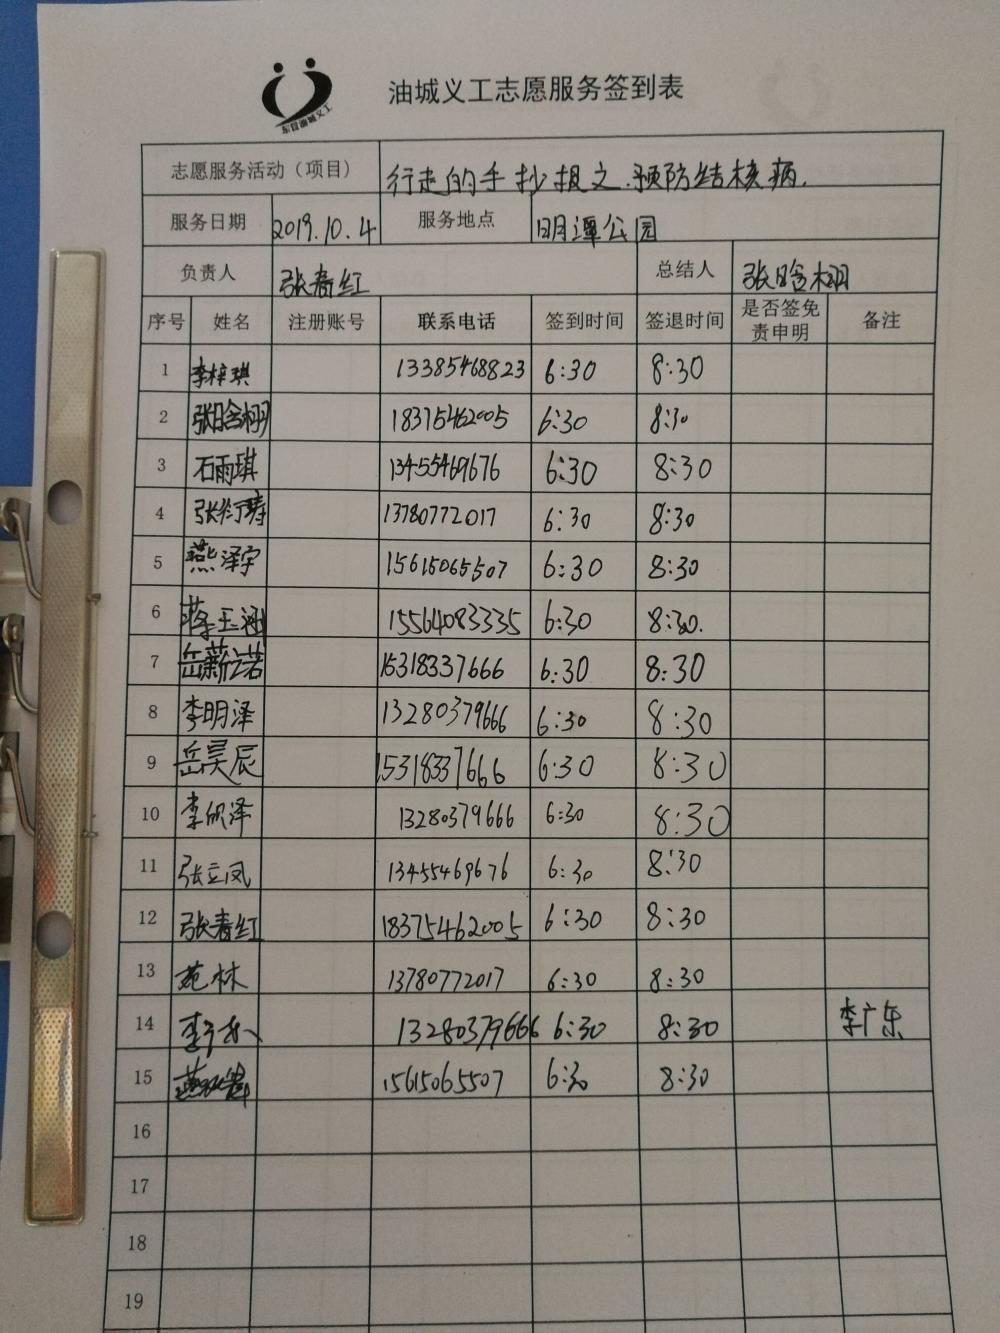 东营油城义工
油城义工志愿服务签到表
志愿服务活动（项目） 行走的手抄报之.预防结核病.
服务日期 2019.10.4 服务地点 明潭公园
负责人 张春红 总结人 张晗栩
序号 姓名 注册账号 联系电话 签到时间 签退时间 是否签免责申明 备注
1 李梓琪 13385468823 6:30 8:30
2 张晗栩 18375462005 6:30 8:30
3 石雨琪 13455469676 6:30 8:30
4 13780772017 6:30 8:30
5 燕泽宇 15615065507 6:30 8:30
6 蒋玉涵 15564083335 6:30 8:30.
7 岳薪诺 15318337666 6:30 8:30
8 李明泽 13280379666 6:30 8:30
9 岳昊辰 15318337666 6:30 8:30
10 13280379666 6:30 8:30
11 张立凤 13455469676 6:30 8:30
12 张春红 18375462005 6:30 8:30
13 苑林 13780772017 6:30 8:30
14 13280379666 6:30 8:30 李广东
15 15615065507 6:30 8:30
16
17
18
19